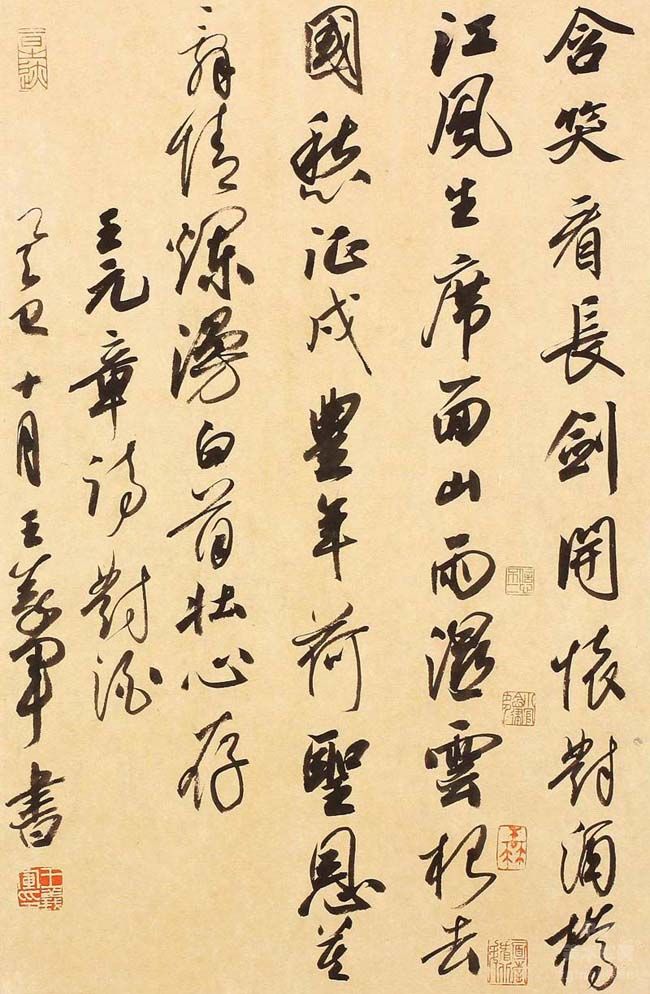 含笑看長劍開懷對酒樽
江風生席面山雨濕雲根去
國愁征戍豐年荷聖恩莫
辭情爛漫白首壯心存
王元章詩對酒
癸巳十月王義軍書